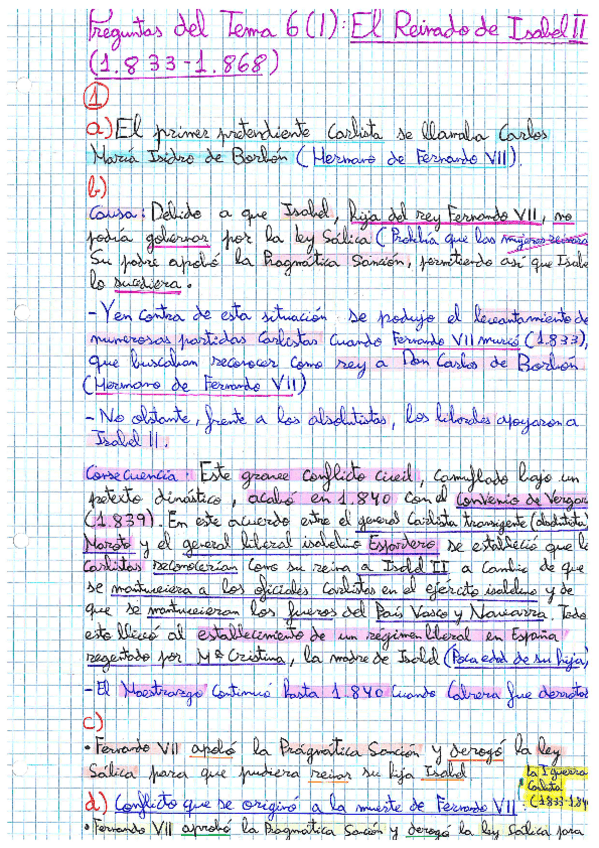 Preguntas del Tema 6 (1): El Reinado de Isabel II
(1.833-1.868)
1
a) El primer pretendiente Carlista se llamaba Carlos
María Isidro de Borbón (Hermano de Fernando VII).
b)
Causa: Debido a que Isabel, hija del rey Fernando VII, no
podía gobernar por la ley Sálica (Prohibía que las mujeres
Su padre aprobó la Pragmática Sanción, permitiendo así que Isabe
lo sucediera.
- Y en contra de esta situación se produjo el levantamiento de
numerosas partidas Carlistas cuando Fernando VII murió (1.833),
que buscaban reconocer como rey a Don Carlos de Borbón
(Hermano de Fernando VII)
- No obstante, frente a los absolutistas, los liberales apoyaron a
Isabel II.
Consecuencia: Este grave conflicto civil, camuflado bajo un
pretexto dinástico, acabó en 1.840 con el Convenio de Vergar
(1.839). En este acuerdo entre el general Carlista transigente (absolutista)
Maroto y el general liberal isabelino Espartero se estableció que lo
Carlistas reconocerían como su reina a Isabel II a cambio de que
se mantuviera a los oficiales Carlistas en el ejército isabelino y de
que se mantuvieran los fueros del País Vasco y Navarra. Todo
esto llevó al establecimiento de un régimen liberal en España
regentado por Mª Cristina, la madre de Isabel (Poca edad de su hija)
- El Maestrazgo continuó hasta 1.840 cuando Cabrera fue derrotado
c)
• Fernando VII aprobó la Prágmática Sanción y derogó la ley
Sálica para que pudiera reinar su hija Isabel
la I guerra
Carlista
(1833-1.840
d) Conflicto que se originó a la muerte de Fernando VII
• Fernando VII aprobó la Pragmática Sanción y derogó la ley Sálica para